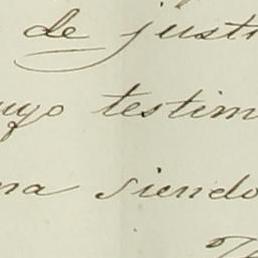 de justi
uyo testim
na siendo